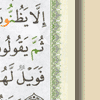 إِلَّا يَظُنُّونَ
ثُمَّ يَقُولُونَ
فَوَيْلٌ لَّهُم